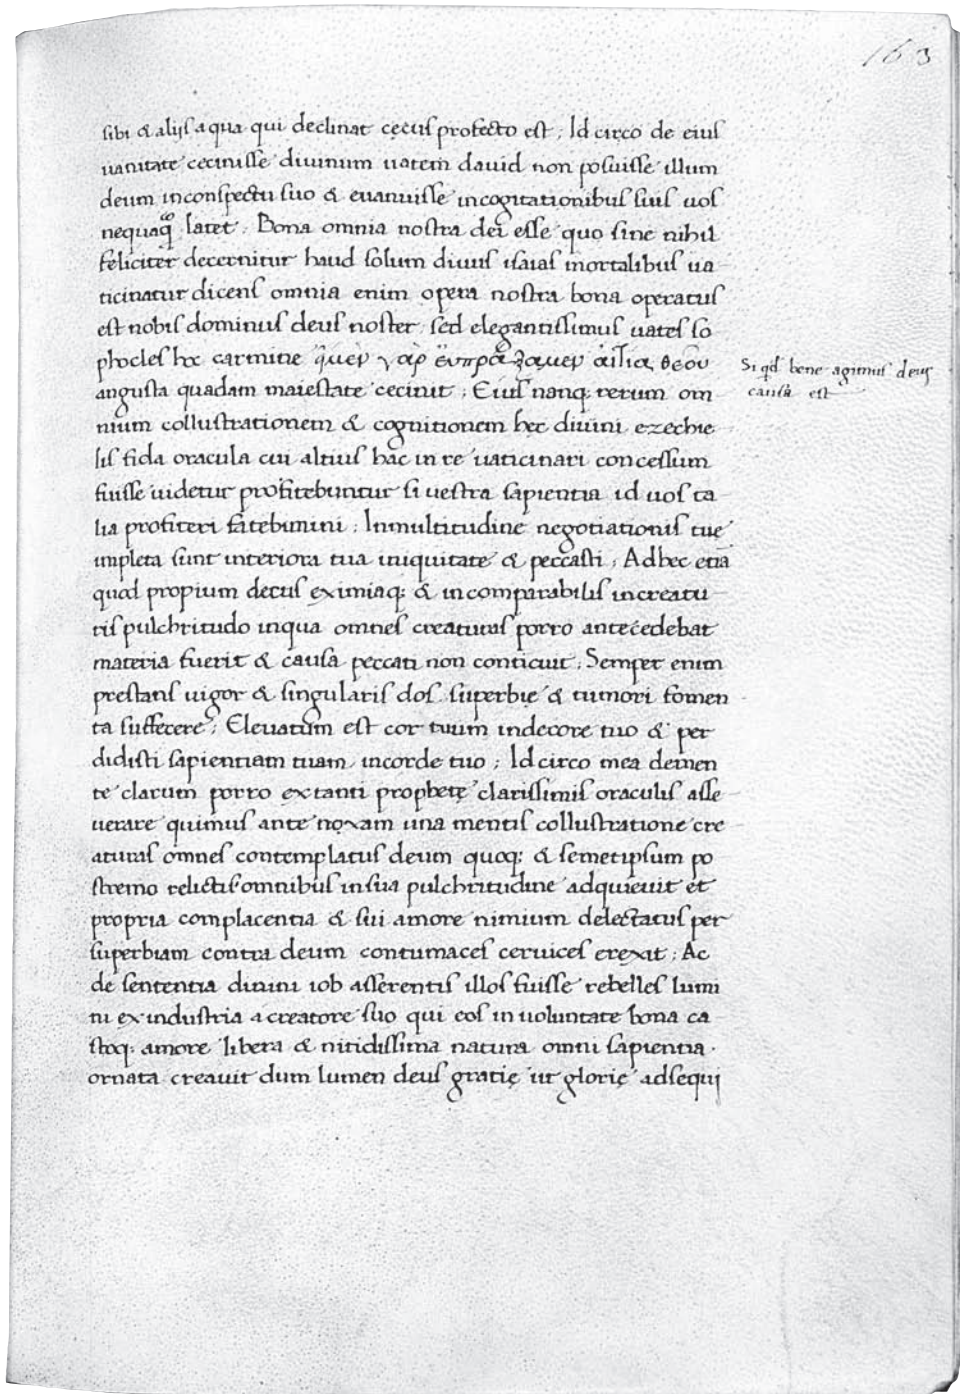 163
sibi & alijs a qua qui declinat cecus profecto est ; Id circo de eius
uanitate cecinisse diuinum uatem dauid non posuisse illum
deum inconspectu suo & euanuisse incogitationibus suis uos
nequaq̃ latet . Bona omnia nostra dei esse quo sine nihil
feliciter decernitur haud solum diuus isaias mortalibus ua
ticinatur dicens omnia enim opera nostra bona operatus
est nobis dominus deus noster ; sed elegantissimus uates so
phocles hoc carmine γαρ ἐυπραξαμεν ἀιτία θεου
angusta quadam maiestate cecinit ; Eius nanq; rerum om
nium collustrationem & cognitionem hec diuini ezechie
lis fida oracula cui altius hac in re uaticinari concessum
fuisse uidetur profitebuntur si uestra sapientia id uos ta
lia profiteri fatebimini ; Inmultitudine negotiationis tue
impleta sunt interiora tua iniquitate & peccasti ; Ad hec etiā
quod propium decus eximiaq; & incomparabilis increatu
ris pulchritudo inqua omnes creaturas porro antecedebat
materia fuerit & causa peccati non conticuit ; Semper enim
prestans uigor & singularis dos superbię & tumori fomen
ta suffecere ; Eleuatum est cor tuum indecore tuo & per
didisti sapientiam tuam incorde tuo ; Id circo mea demen
te clarum porro extanti prophetę clarissimis oraculis asse
uerare quimus ante noxam una mentis collustratione cre
aturas omnes contemplatus deum quoq; & semetipsum po
stremo relictis omnibus insua pulchritudine adquieuit et
propria complacentia & sui amore nimium delectatus per
superbiam contra deum contumaces ceruices erexit ; Ac
de sententia diuini iob asserentis illos fuisse rebelles lumi
ni ex industria a creatore suo qui eos in uoluntate bona ca
stoq; amore libera & nitidissima natura omni sapientia .
ornata creauit dum lumen deus gratię ut glorię adsequi
Si qd bene agimus deus
causa est